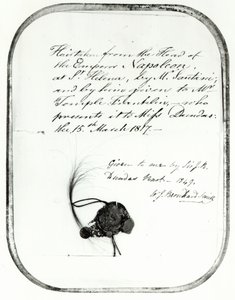 Hair taken from the Head of
the Emperor Napoleon,
at St Helena, by M. Santini,
and by him given to Mr
Temple Franklin, who
presents it to Miss Dundas
the 15th March 1817.
Given to me by
Dundas 1849.